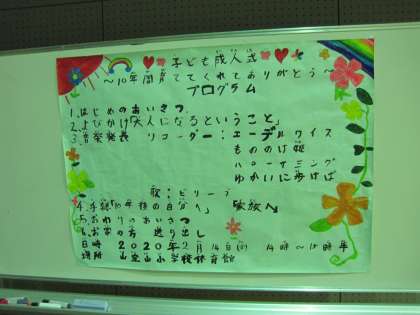 子ども成人式
～10年間育ててくれてありがとう～
プログラム
1.はじめのあいさつ
2.よびかけ「大人になるということ」
3.音楽発表 リコーダー:エーデルワイス
もののけ姫
ハローサミング
ゆかいに歩けば
歌:ビリーブ
4.手紙「10年後の自分へ」「家族へ」
5.おわりのあいさつ
6.お家の方 送り出し
日時 2020年2月14日 14時～15時半
場所 小学校体育館